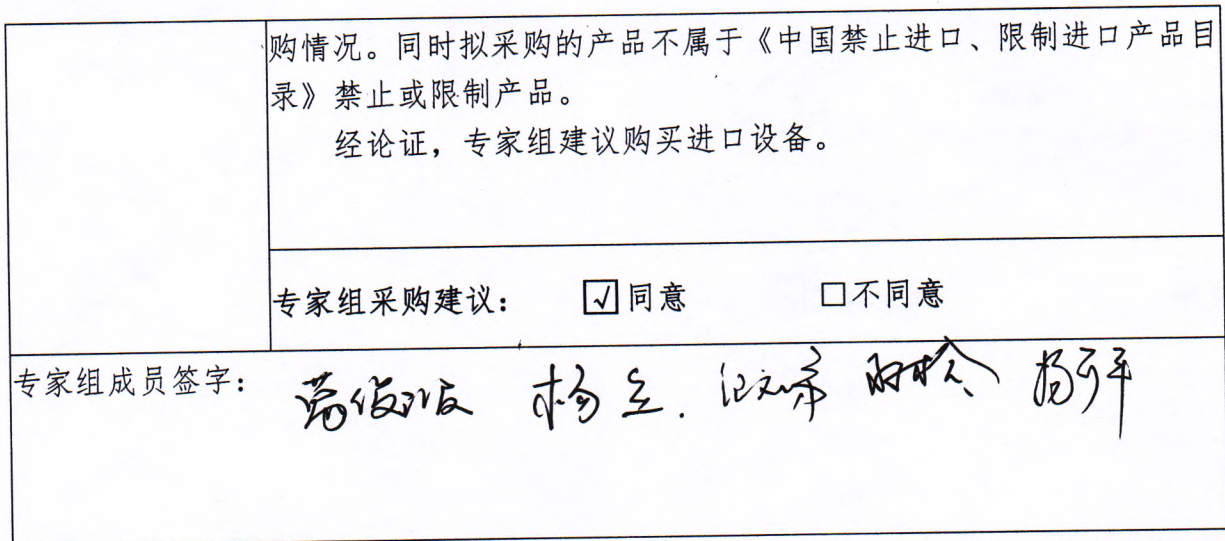 购情况。同时拟采购的产品不属于《中国禁止进口、限制进口产品目
录》禁止或限制产品。
经论证，专家组建议购买进口设备。
专家组采购建议： ☑同意 □不同意
专家组成员签字： 杨